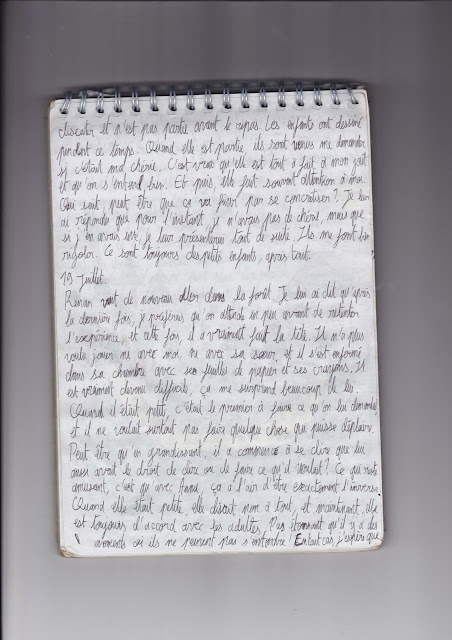 discuter et n'est pas partie avant le repas. Les enfants ont dessiné
pendant ce temps. Quand elle est partie ils sont venus me demander
si c'était ma chérie. C'est vrai qu'elle est tout à fait à mon goût
et qu'on s'entend bien. Et puis elle fait souvent attention à moi.
Qui sait, peut être que ça va finir par se concrétiser? Je leur
ai répondu que pour l'instant, je n'avais pas de chérie, mais que
si j'en avais une, je leur présenterai tout de suite. Ils me font bien
rigoler. Ce sont toujours des petits enfants, après tout.
19 Juillet
Renan veut de nouveau aller dans la forêt. Je lui ai dit qu'après
la dernière fois, je préférais qu'on attende un peu avant de retenter
l'expérience, et cette fois, il a vraiment fait la tête. Il n'a plus
voulu jouer ni avec moi, ni avec sa sœur, et il s'est enfermé
dans sa chambre avec ses feuilles de papier et ses crayons. Il
est vraiment devenu difficile, ça me surprend beaucoup de lui.
Quand il était petit, c'était le premier à faire ce qu'on lui demandait
et il ne voulait surtout pas faire quelque chose qui puisse déplaire.
Peut être qu'en grandissant, il a commencé à se dire que lui
aussi avait le droit de dire ou de faire ce qu'il voulait? Ce qui reste
amusant, c'est qu'avec ça a l'air d'être exactement l'inverse.
Quand elle était petite, elle disait non à tout, et maintenant, elle
est toujours d'accord avec les adultes. Pas étonnant qu'il y a des
moments où ils ne peuvent pas s'entendre! En tout cas, j'espère que